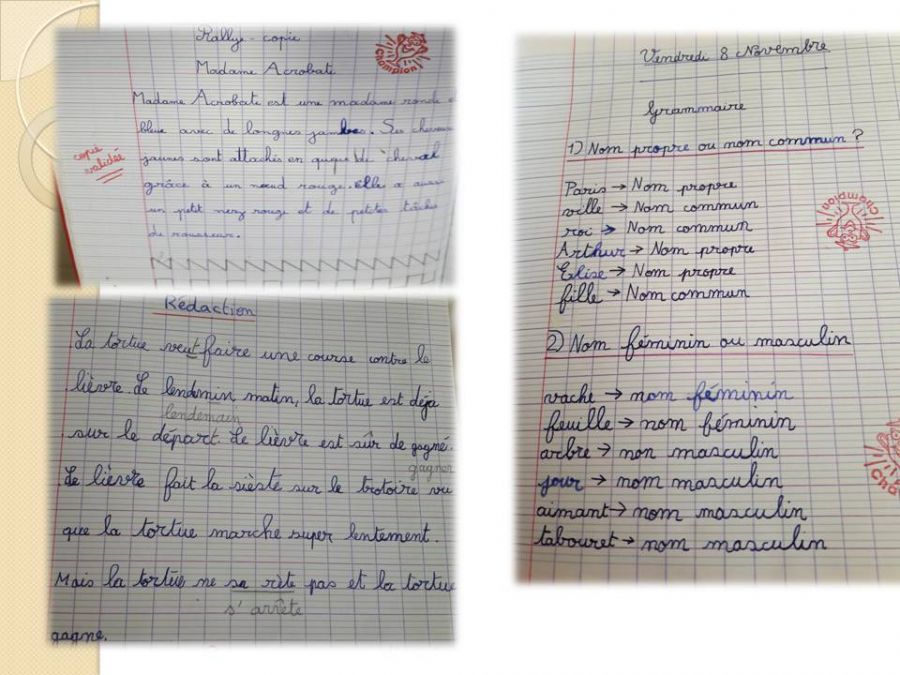 Rallye-copie
Champion
Madame Acrobate
Madame Acrobate est une madame ronde e
bleue avec de longues jambes. Ses cheveux
jaunes sont attachés en queue de cheval
copie
validée
grâce à un nœud rouge. elle a aussi
un petit nez rouge et de petites tâches
de rousseur.
Rédaction
La tortue veut faire une course contre le
lièvre. Le lendemin matin, la tortue est déja
lendemain
sur le départ Le lièvre est sûr de gagné.
gagner
Le lièvre fait la sièste sur le trotoire vu
que la tortue marche super lentement.
Mais la tortue ne sa rète pas et la tortue
s'arrête
gagne.
Vendredi 8 Novembre
Grammaire
1) Nom propre ou nom commun ?
Paris → Nom propre
ville → Nom commun
roi → Nom commun
Champion
Arthur → Nom propre
Elise → Nom propre
fille → Nom commun
2) Nom féminin ou masculin
vache → nom féminin
feuille → nom féminin
arbre → non masculin
jour → nom masculin
Cha
aimant → nom masculin
tabouret → nom masculin